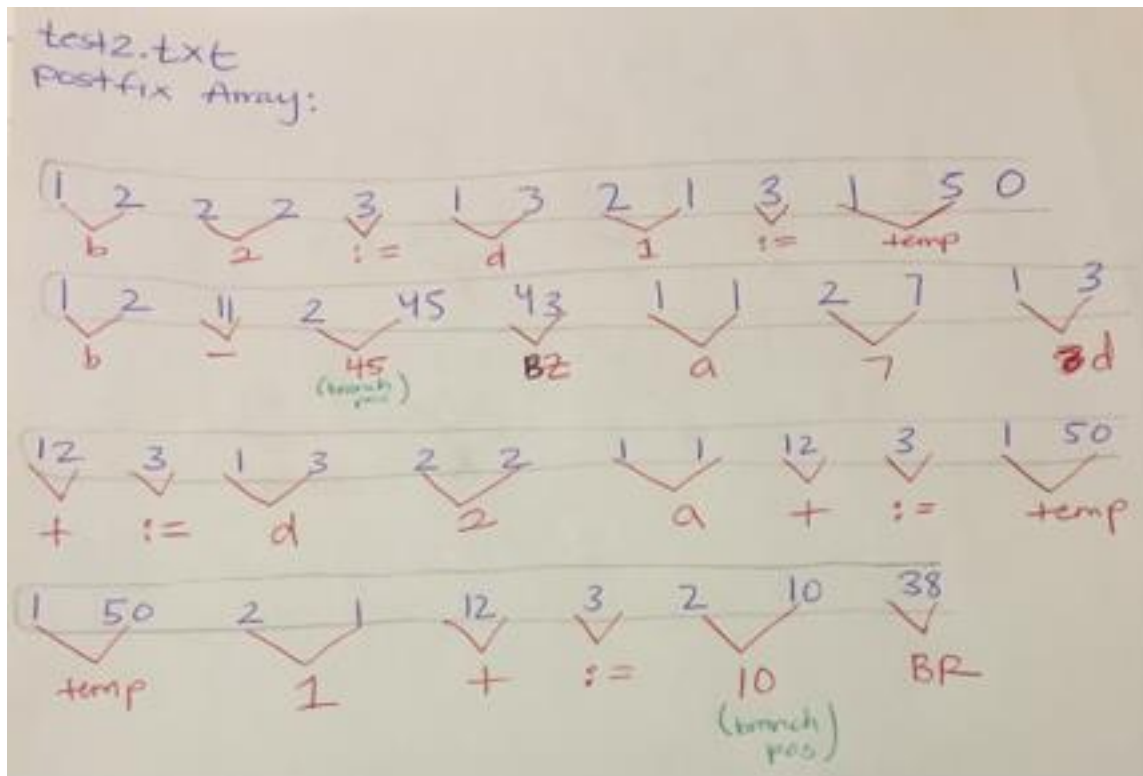 test2.txt
postfix Array:
1 2 2 2 3 1 3 2 1 3 1 5 0
b 2 := d 1 := temp
1 2 11 2 45 43 1 1 2 7 1 3
b - 45 BZ a 7 d
(branch pos)
12 3 1 3 2 2 1 1 12 3 1 50
+ := d 2 a + := temp
1 50 2 1 12 3 2 10 38
temp 1 + := 10 BR
(branch
pos)